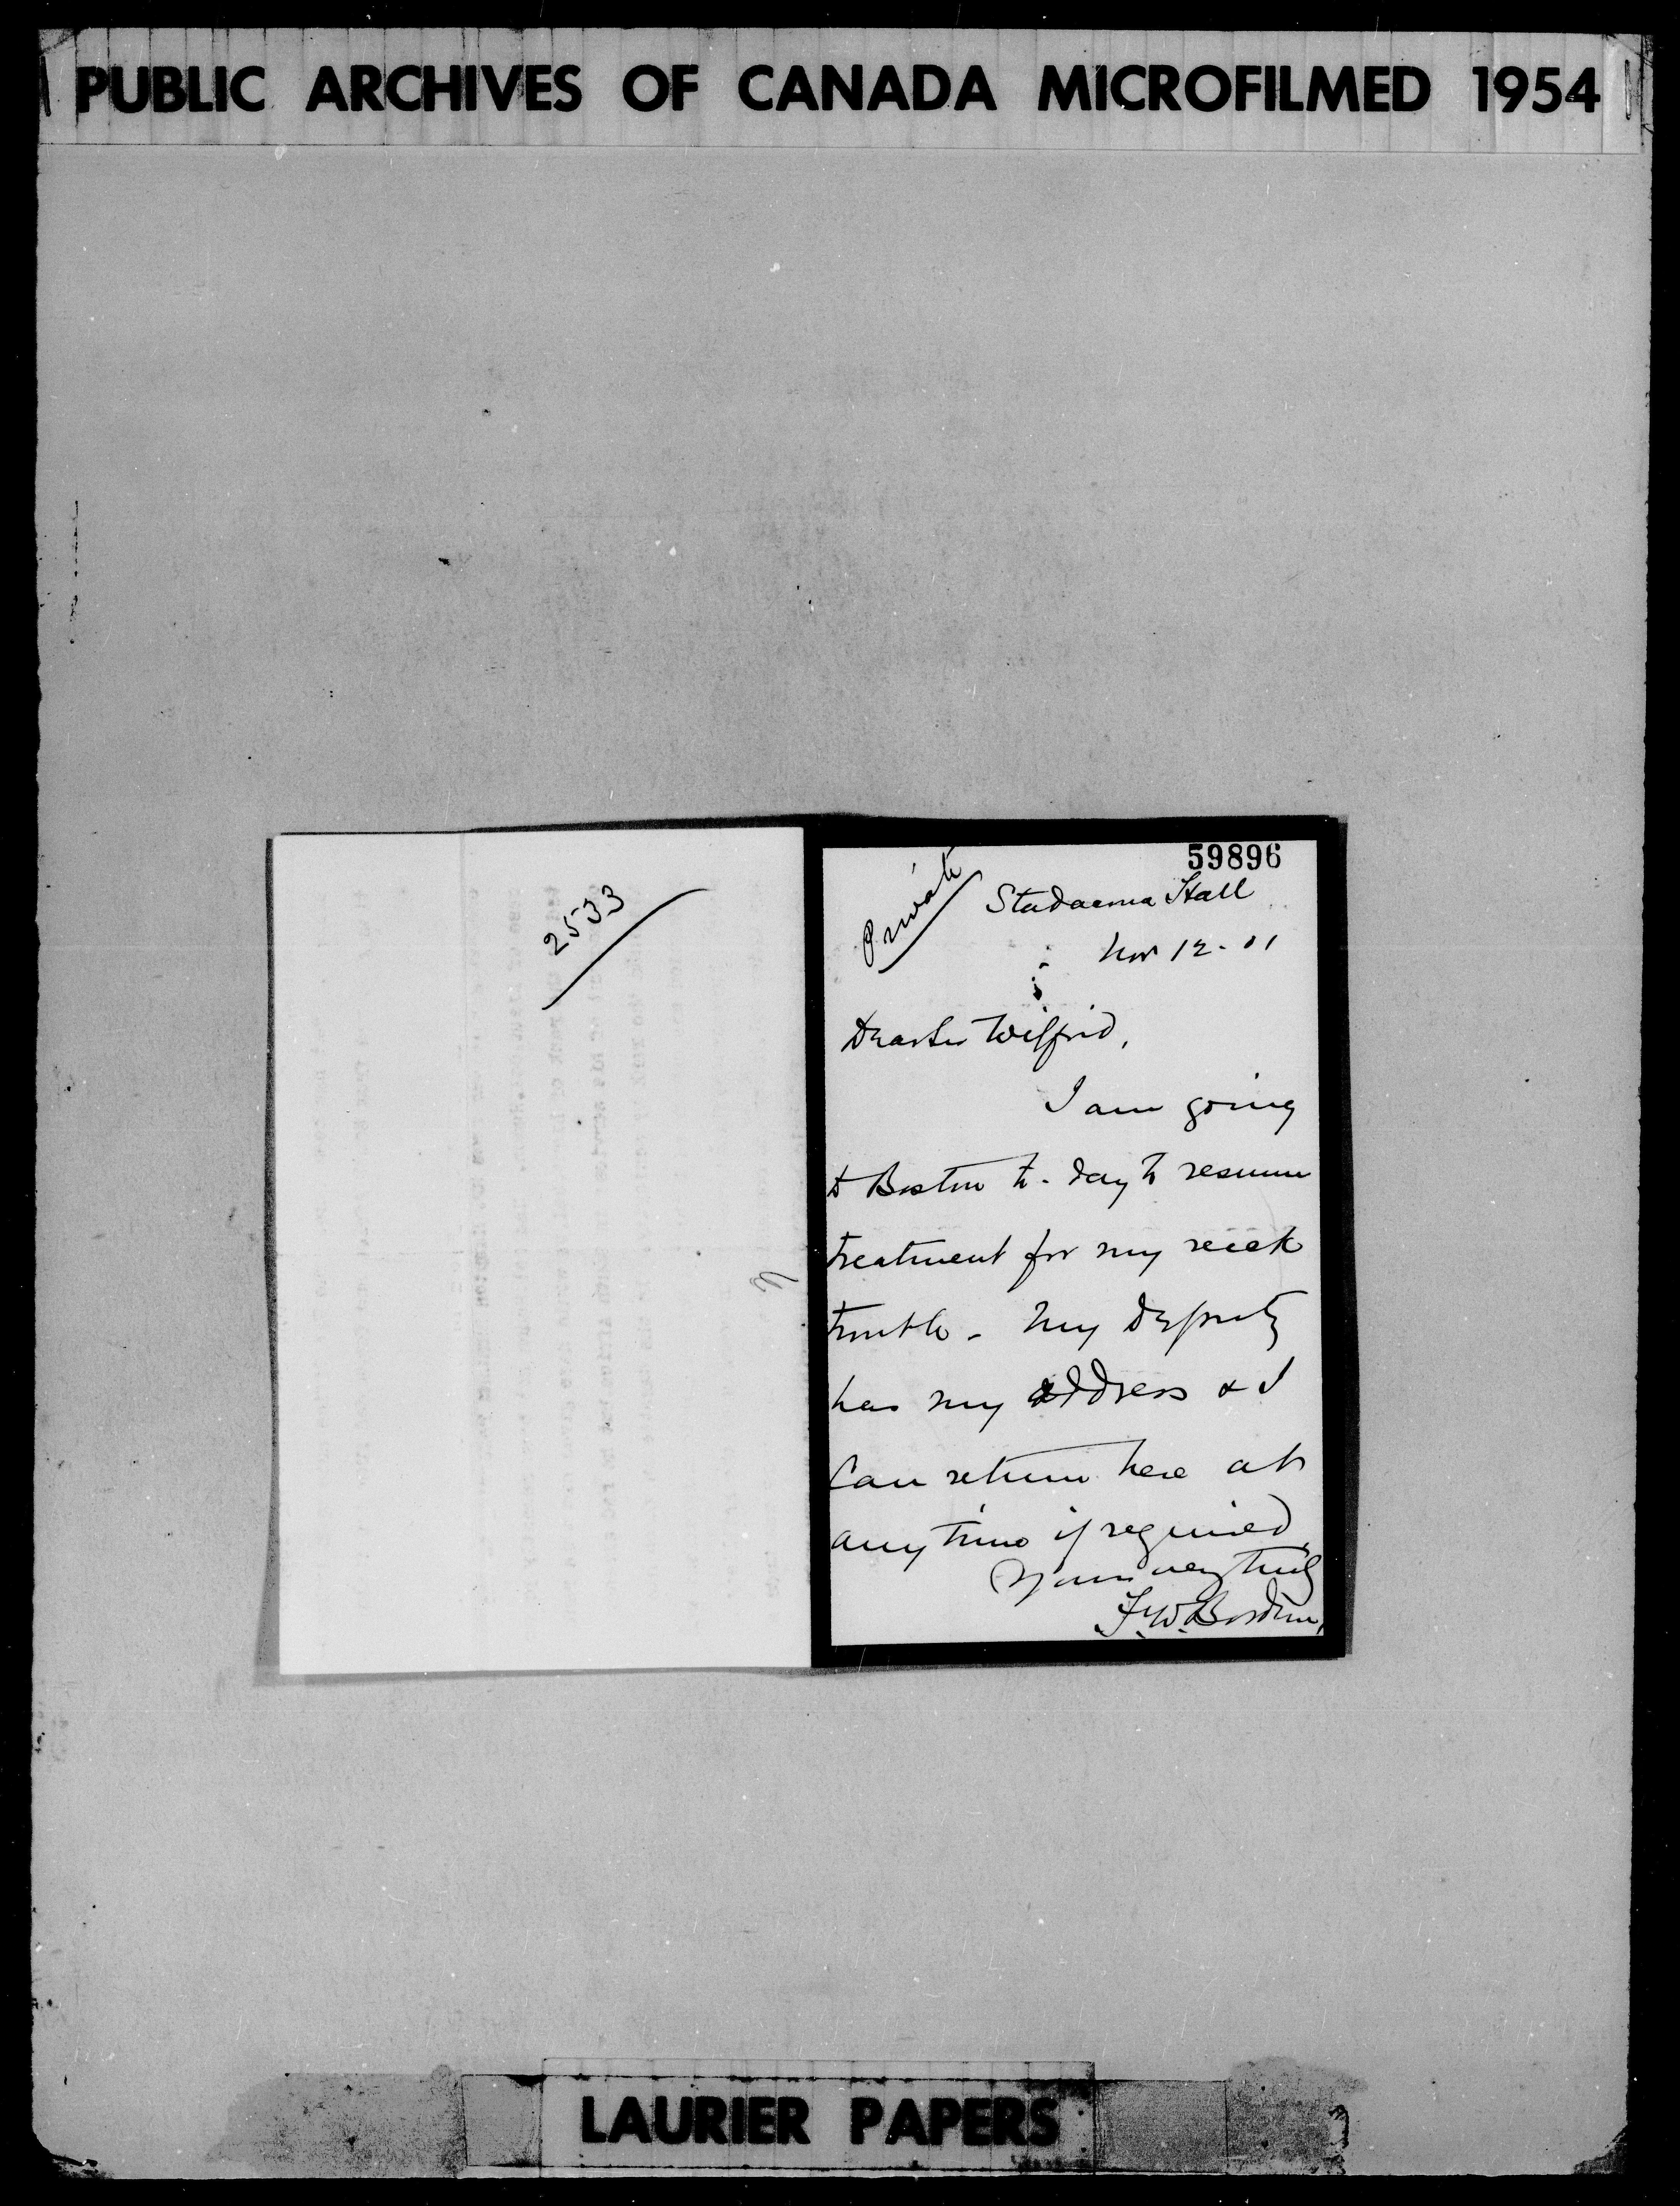 PUBLIC ARCHIVES OF CANADA MICROFILMED 1954
2533
59896
Private
Stadacona Hall
Nov 12 - 01
Dear Sir Wilfrid,
I am going
to Boston to-day to resume
treatment for my
trouble - My Deputy
has my address & I
Can return here at
any time if required
Yours very truly
F. W. Borden,
LAURIER PAPERS